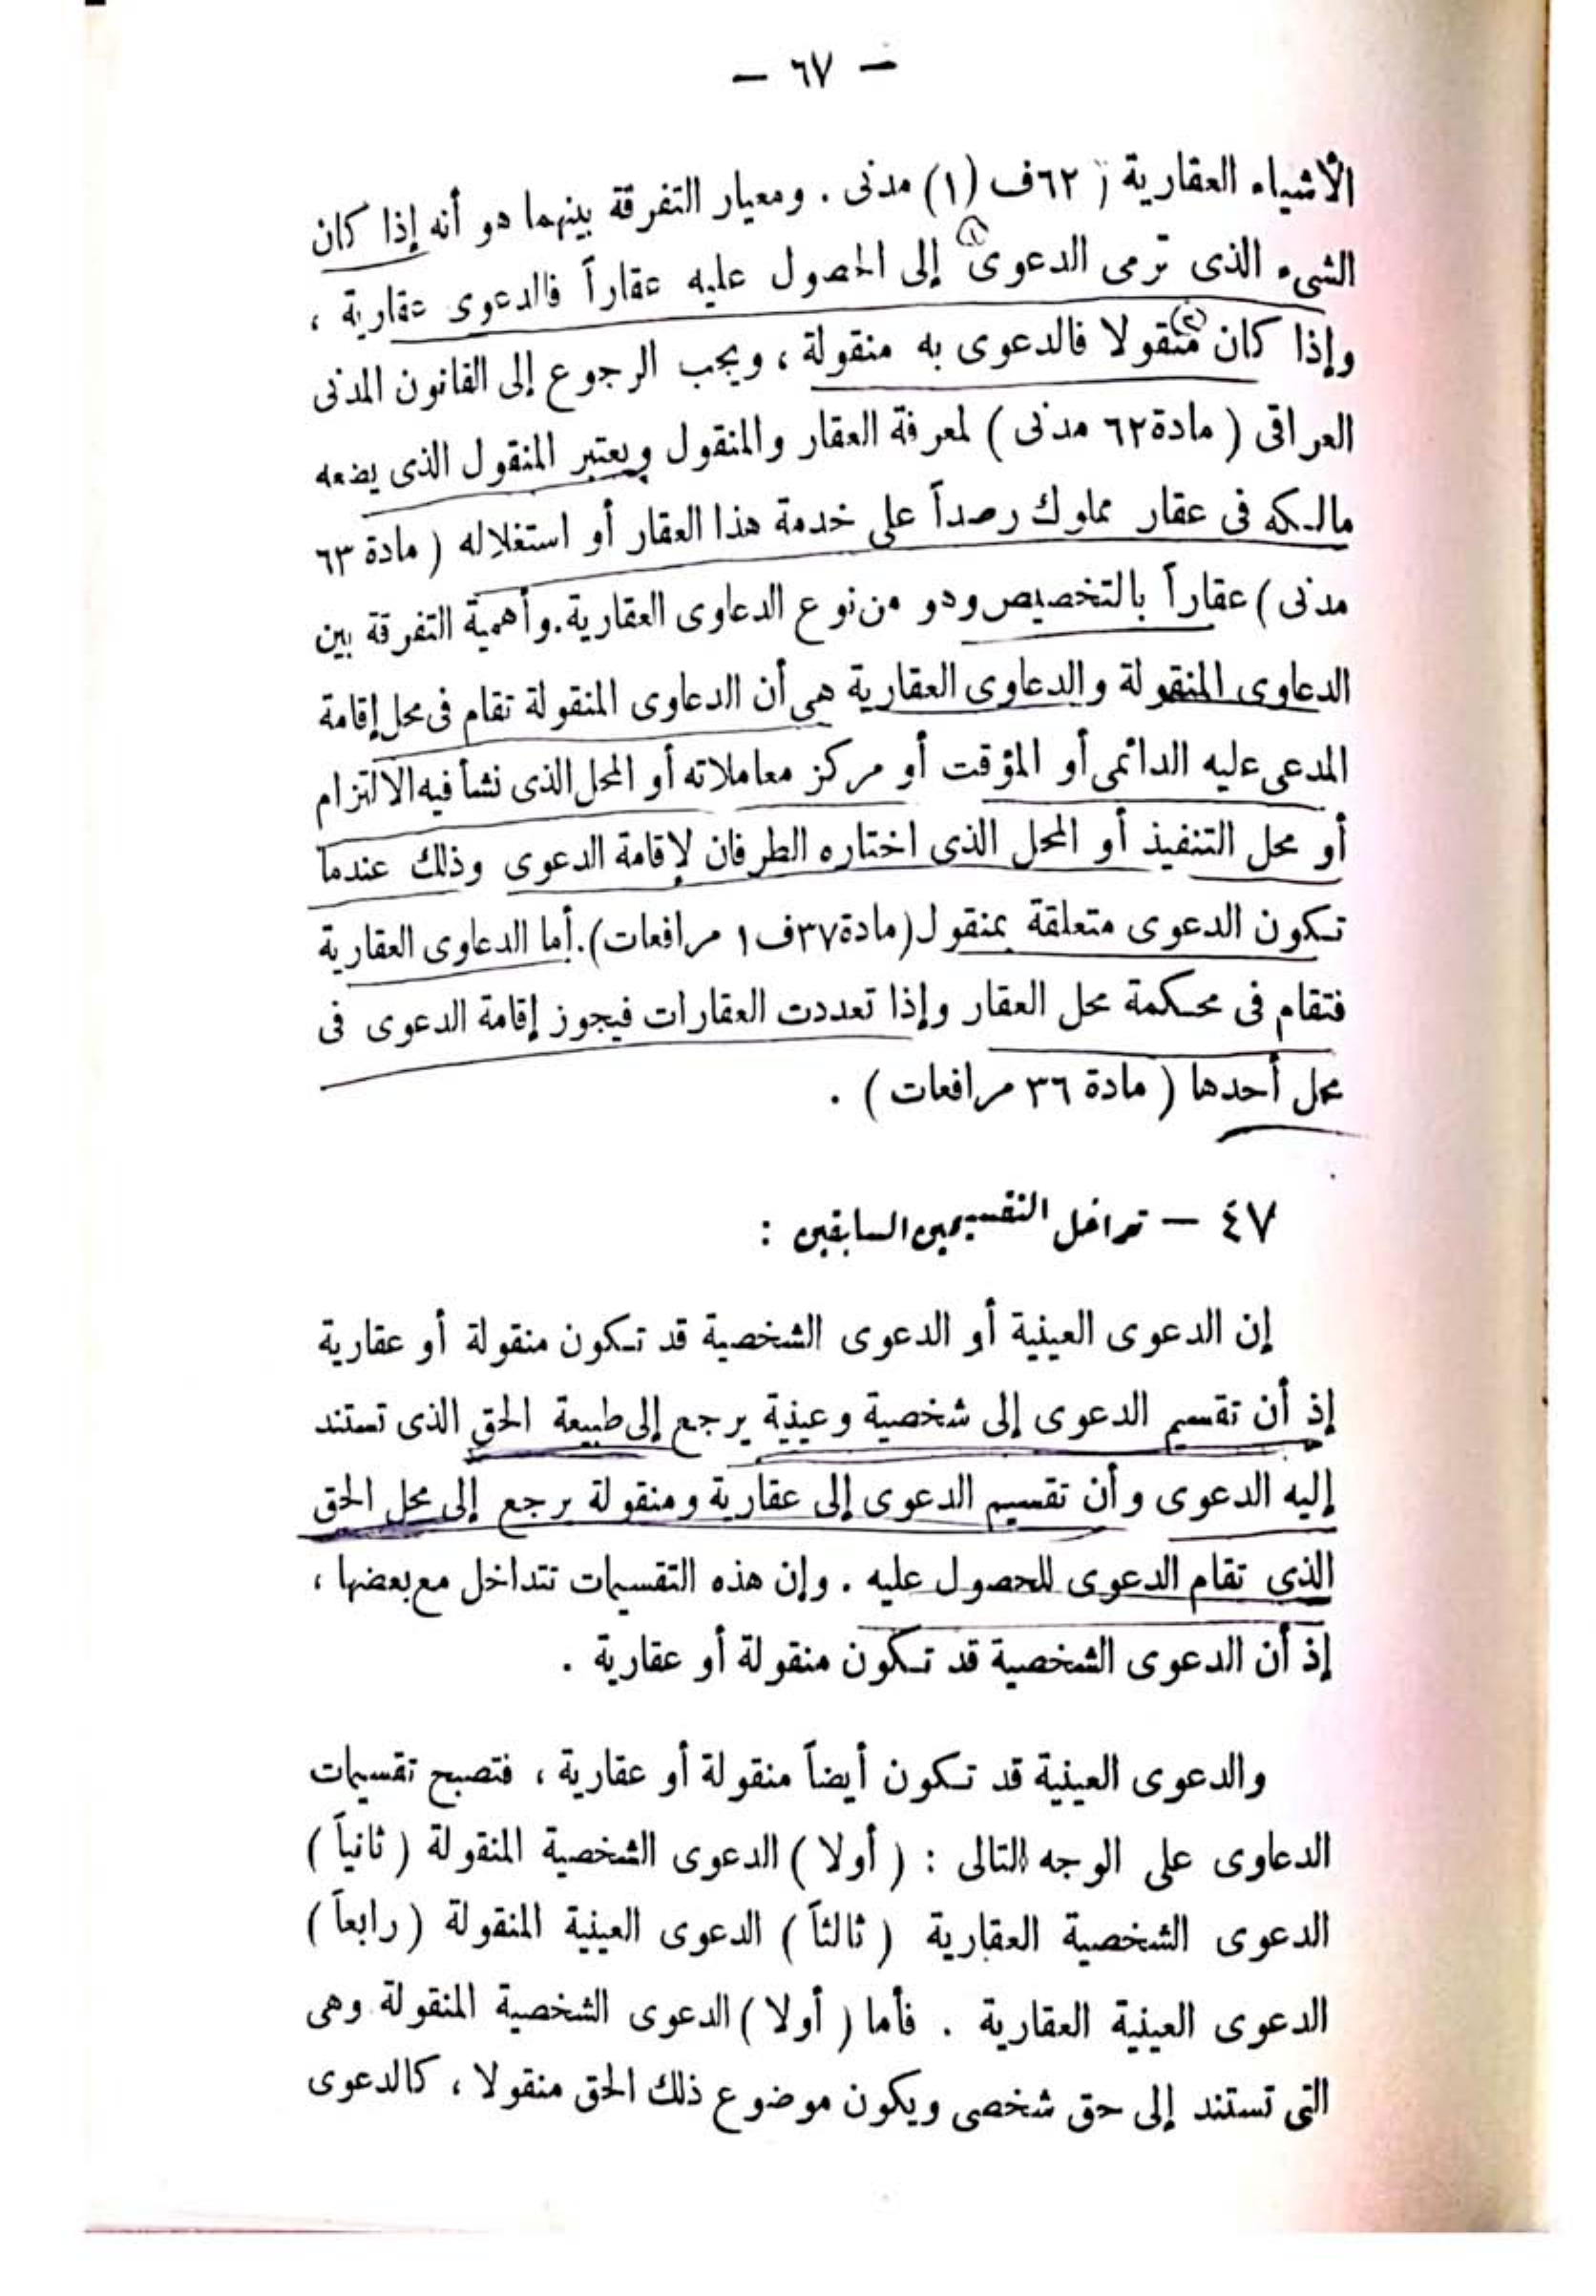 — ٦٧ —
الأشياء العقارية ( ٦٢ف (١) مدنى . ومعيار التفرقة بينهما هو أنه إذا كان
الشىء الذى ترمى الدعوى (١) إلى الحصول عليه عقاراً فالدعوى عقارية ،
وإذا كان (٢) منقولا فالدعوى به منقولة ، ويجب الرجوع إلى القانون المدنى
العراقى ( مادة ٦٢ مدنى ) لمعرفة العقار والمنقول ويعتبر المنقول الذى يضعه
مالكه فى عقار مملوك رصداً على خدمة هذا العقار أو استغلاله ( مادة ٦٣
مدنى ) عقاراً بالتخصيص وهو من نوع الدعاوى العقارية . وأهمية التفرقة بين
الدعاوى المنقولة والدعاوى العقارية هى أن الدعاوى المنقولة تقام فى محل إقامة
المدعى عليه الدائمى أو المؤقت أو مركز معاملاته أو المحل الذى نشأ فيه الالتزام
أو محل التنفيذ أو المحل الذى اختاره الطرفان لإقامة الدعوى وذلك عندما
تكون الدعوى متعلقة بمنقول ( مادة ٣٧ف ١ مرافعات ) . أما الدعاوى العقارية
فتقام فى محكمة محل العقار وإذا تعددت العقارات فيجوز إقامة الدعوى فى
محل أحدها ( مادة ٣٦ مرافعات ) .
٤٧ — تداخل التقسيمين السابقين :
إن الدعوى العينية أو الدعوى الشخصية قد تكون منقولة أو عقارية
إذ أن تقسيم الدعوى إلى شخصية وعينية يرجع إلى طبيعة الحق الذى تستند
إليه الدعوى وأن تقسيم الدعوى إلى عقارية ومنقولة يرجع إلى محل الحق
الذى تقام الدعوى للحصول عليه . وإن هذه التقسيمات تتداخل مع بعضها ،
إذ أن الدعوى الشخصية قد تكون منقولة أو عقارية .
والدعوى العينية قد تكون أيضاً منقولة أو عقارية ، فتصبح تقسيمات
الدعاوى على الوجه التالى : ( أولا ) الدعوى الشخصية المنقولة ( ثانياً )
الدعوى الشخصية العقارية ( ثالثاً ) الدعوى العينية المنقولة ( رابعاً )
الدعوى العينية العقارية . فأما ( أولا ) الدعوى الشخصية المنقولة وهى
التى تستند إلى حق شخصى ويكون موضوع ذلك الحق منقولا ، كالدعوى